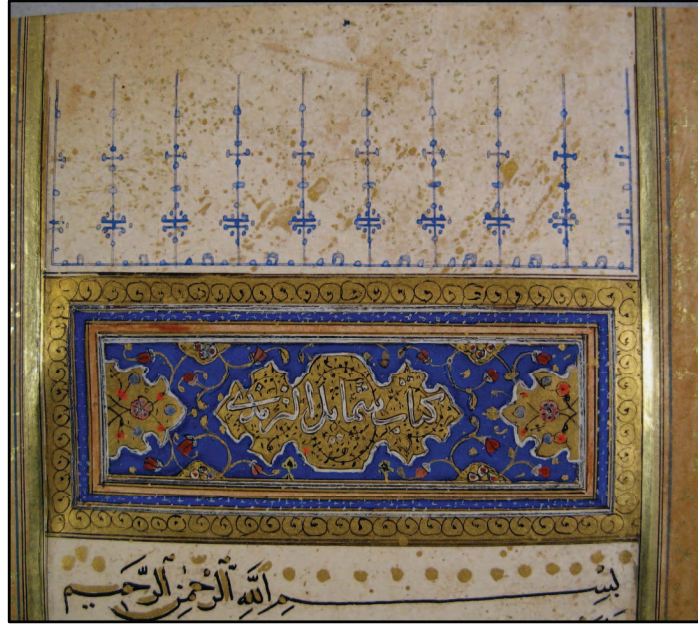 كتاب شمايل الترمذي
بِسْمِ اللَّهِ الرَّحْمٰنِ الرَّحِيمِ